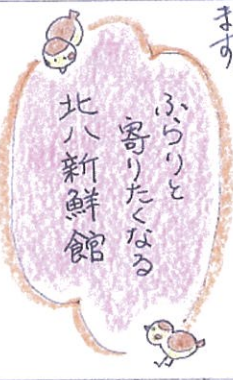 ます
ふらりと
寄りたくなる
北八新鮮館